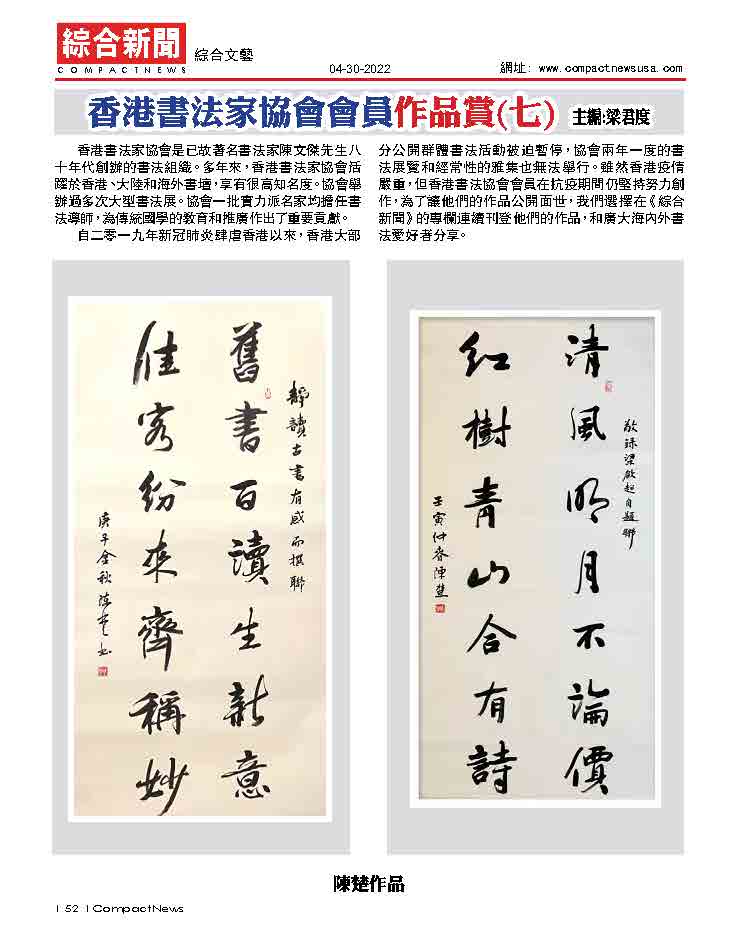 綜合新聞
COMPACTNEWS
綜合文藝
04-30-2022
網址: www.compactnewsusa.com
香港書法家協會會員作品賞(七) 主編:梁君度
香港書法家協會是已故著名書法家陳文傑先生八
十年代創辦的書法組織。多年來，香港書法家協會活
躍於香港、大陸和海外書壇，享有很高知名度。協會舉
辦過多次大型書法展。協會一批實力派名家均擔任書
法導師，為傳統國學的教育和推廣作出了重要貢獻。
自二零一九年新冠肺炎肆虐香港以來，香港大部
分公開群體書法活動被迫暫停，協會兩年一度的書
法展覽和經常性的雅集也無法舉行。雖然香港疫情
嚴重，但香港書法協會會員在抗疫期間仍堅持努力創
作，為了讓他們的作品公開面世，我們選擇在《綜合
新聞》的專欄連續刊登他們的作品，和廣大海內外書
法愛好者分享。
靜讀古書有感而撰聯
舊書百讀生新意
佳客紛來齊稱妙
庚子金秋陳楚書
敬錄梁啟超自題聯
清風明月不論價
紅樹青山合有詩
壬寅仲春陳楚
陳楚作品
| 52 | CompactNews